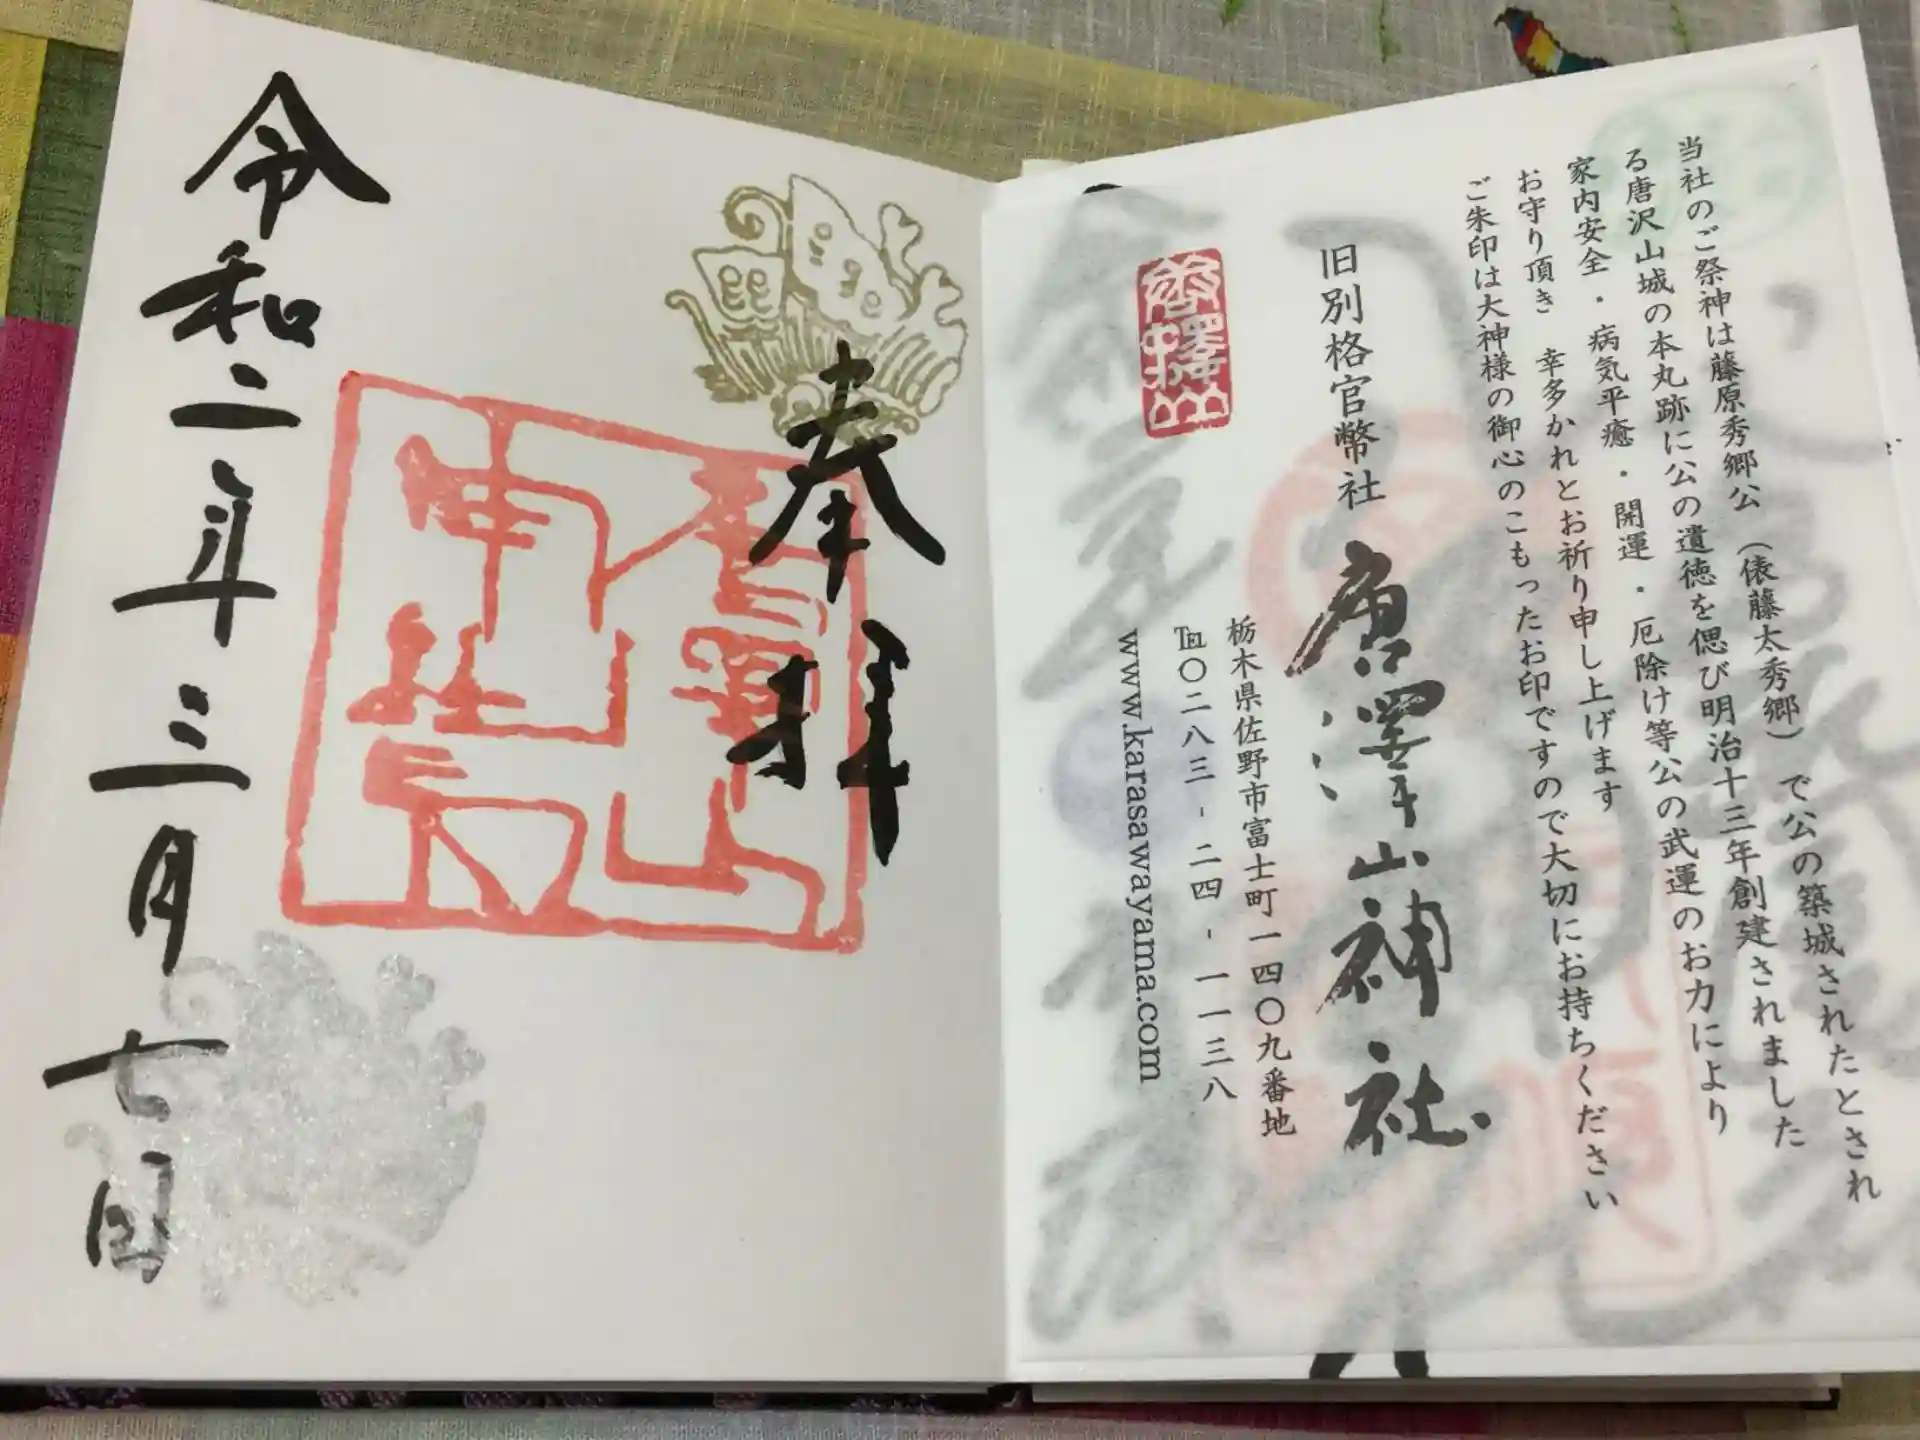 当社のご祭神は藤原秀郷公（俵藤太秀郷）で公の築城されたとされ
る唐沢山城の本丸跡に公の遺徳を偲び明治十三年創建されました
家内安全・病気平癒・開運・厄除け等公の武運のお力により
お守り頂き　幸多かれとお祈り申し上げます
ご朱印は大神様の御心のこもったお印ですので大切にお持ちください
旧別格官幣社　唐澤山神社
唐澤山
栃木県佐野市富士町一四〇九番地
℡〇二八三-二四-一一三八
www.karasawayama.com
奉拝
唐澤山
神社
令和二年三月七日